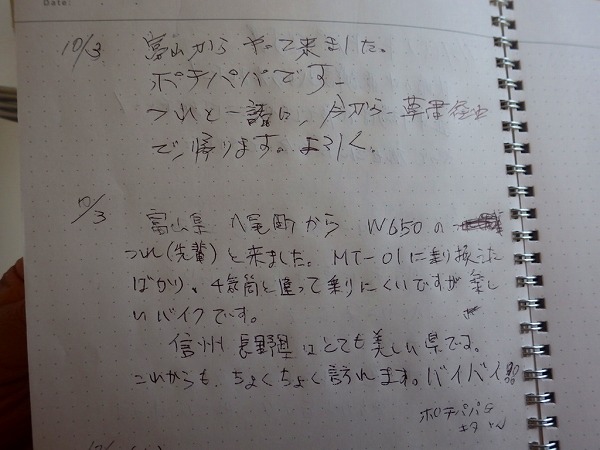 Date:
10/3 富山から やって来ました。
ポチパパです。
つれと一諸に、今から草津経由
で、帰ります。よろしく。
10/3 富山県 八尾町から W650の
つれ(先輩)と来ました。MT-01に乗り換えた
ばかり、4気筒と違って乗りにくいですが楽し
いバイクです。
信州 長野県はとても美しい県です。
これからも、ちょくちょく訪れます。バイバイ!!
ポチパパ